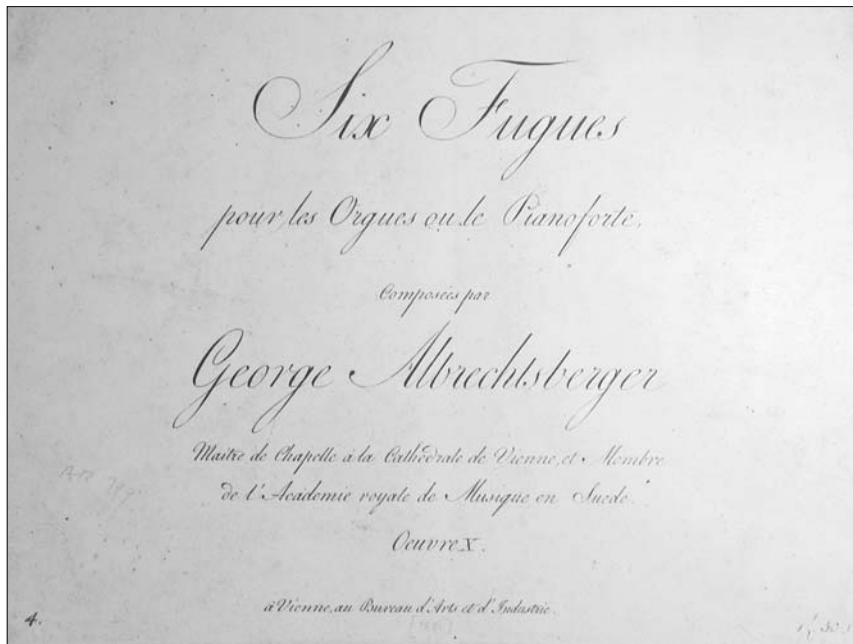 Six Fugues
pour les Orgues ou le Pianoforte,
Composées par
George Albrechtsberger
Maitre de Chapelle à la Cathédrale de Vienne, et Membre
de l'Académie royale de Musique en Suede.
Oeuvre X.
à Vienne, au Bureau d'Arts et d'Industrie.
4.